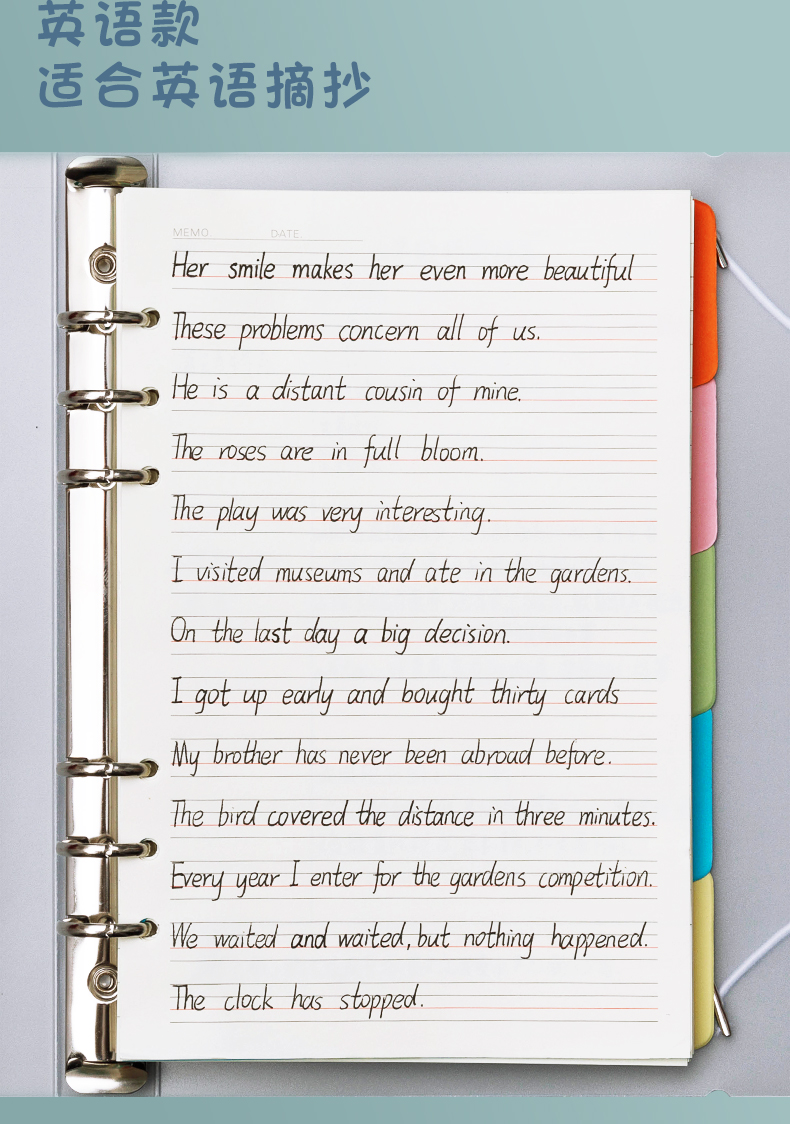 英语款
适合英语摘抄
MEMO DATE
Her smile makes her even more beautiful
These problems concern all of us.
He is a distant cousin of mine.
The roses are in full bloom.
The play was very interesting.
I visited museums and ate in the gardens.
On the last day a big decision.
I got up early and bought thirty cards
My brother has never been abroad before.
The bird covered the distance in three minutes.
Every year I enter for the gardens competition.
We waited and waited, but nothing happened.
The clock has stopped.